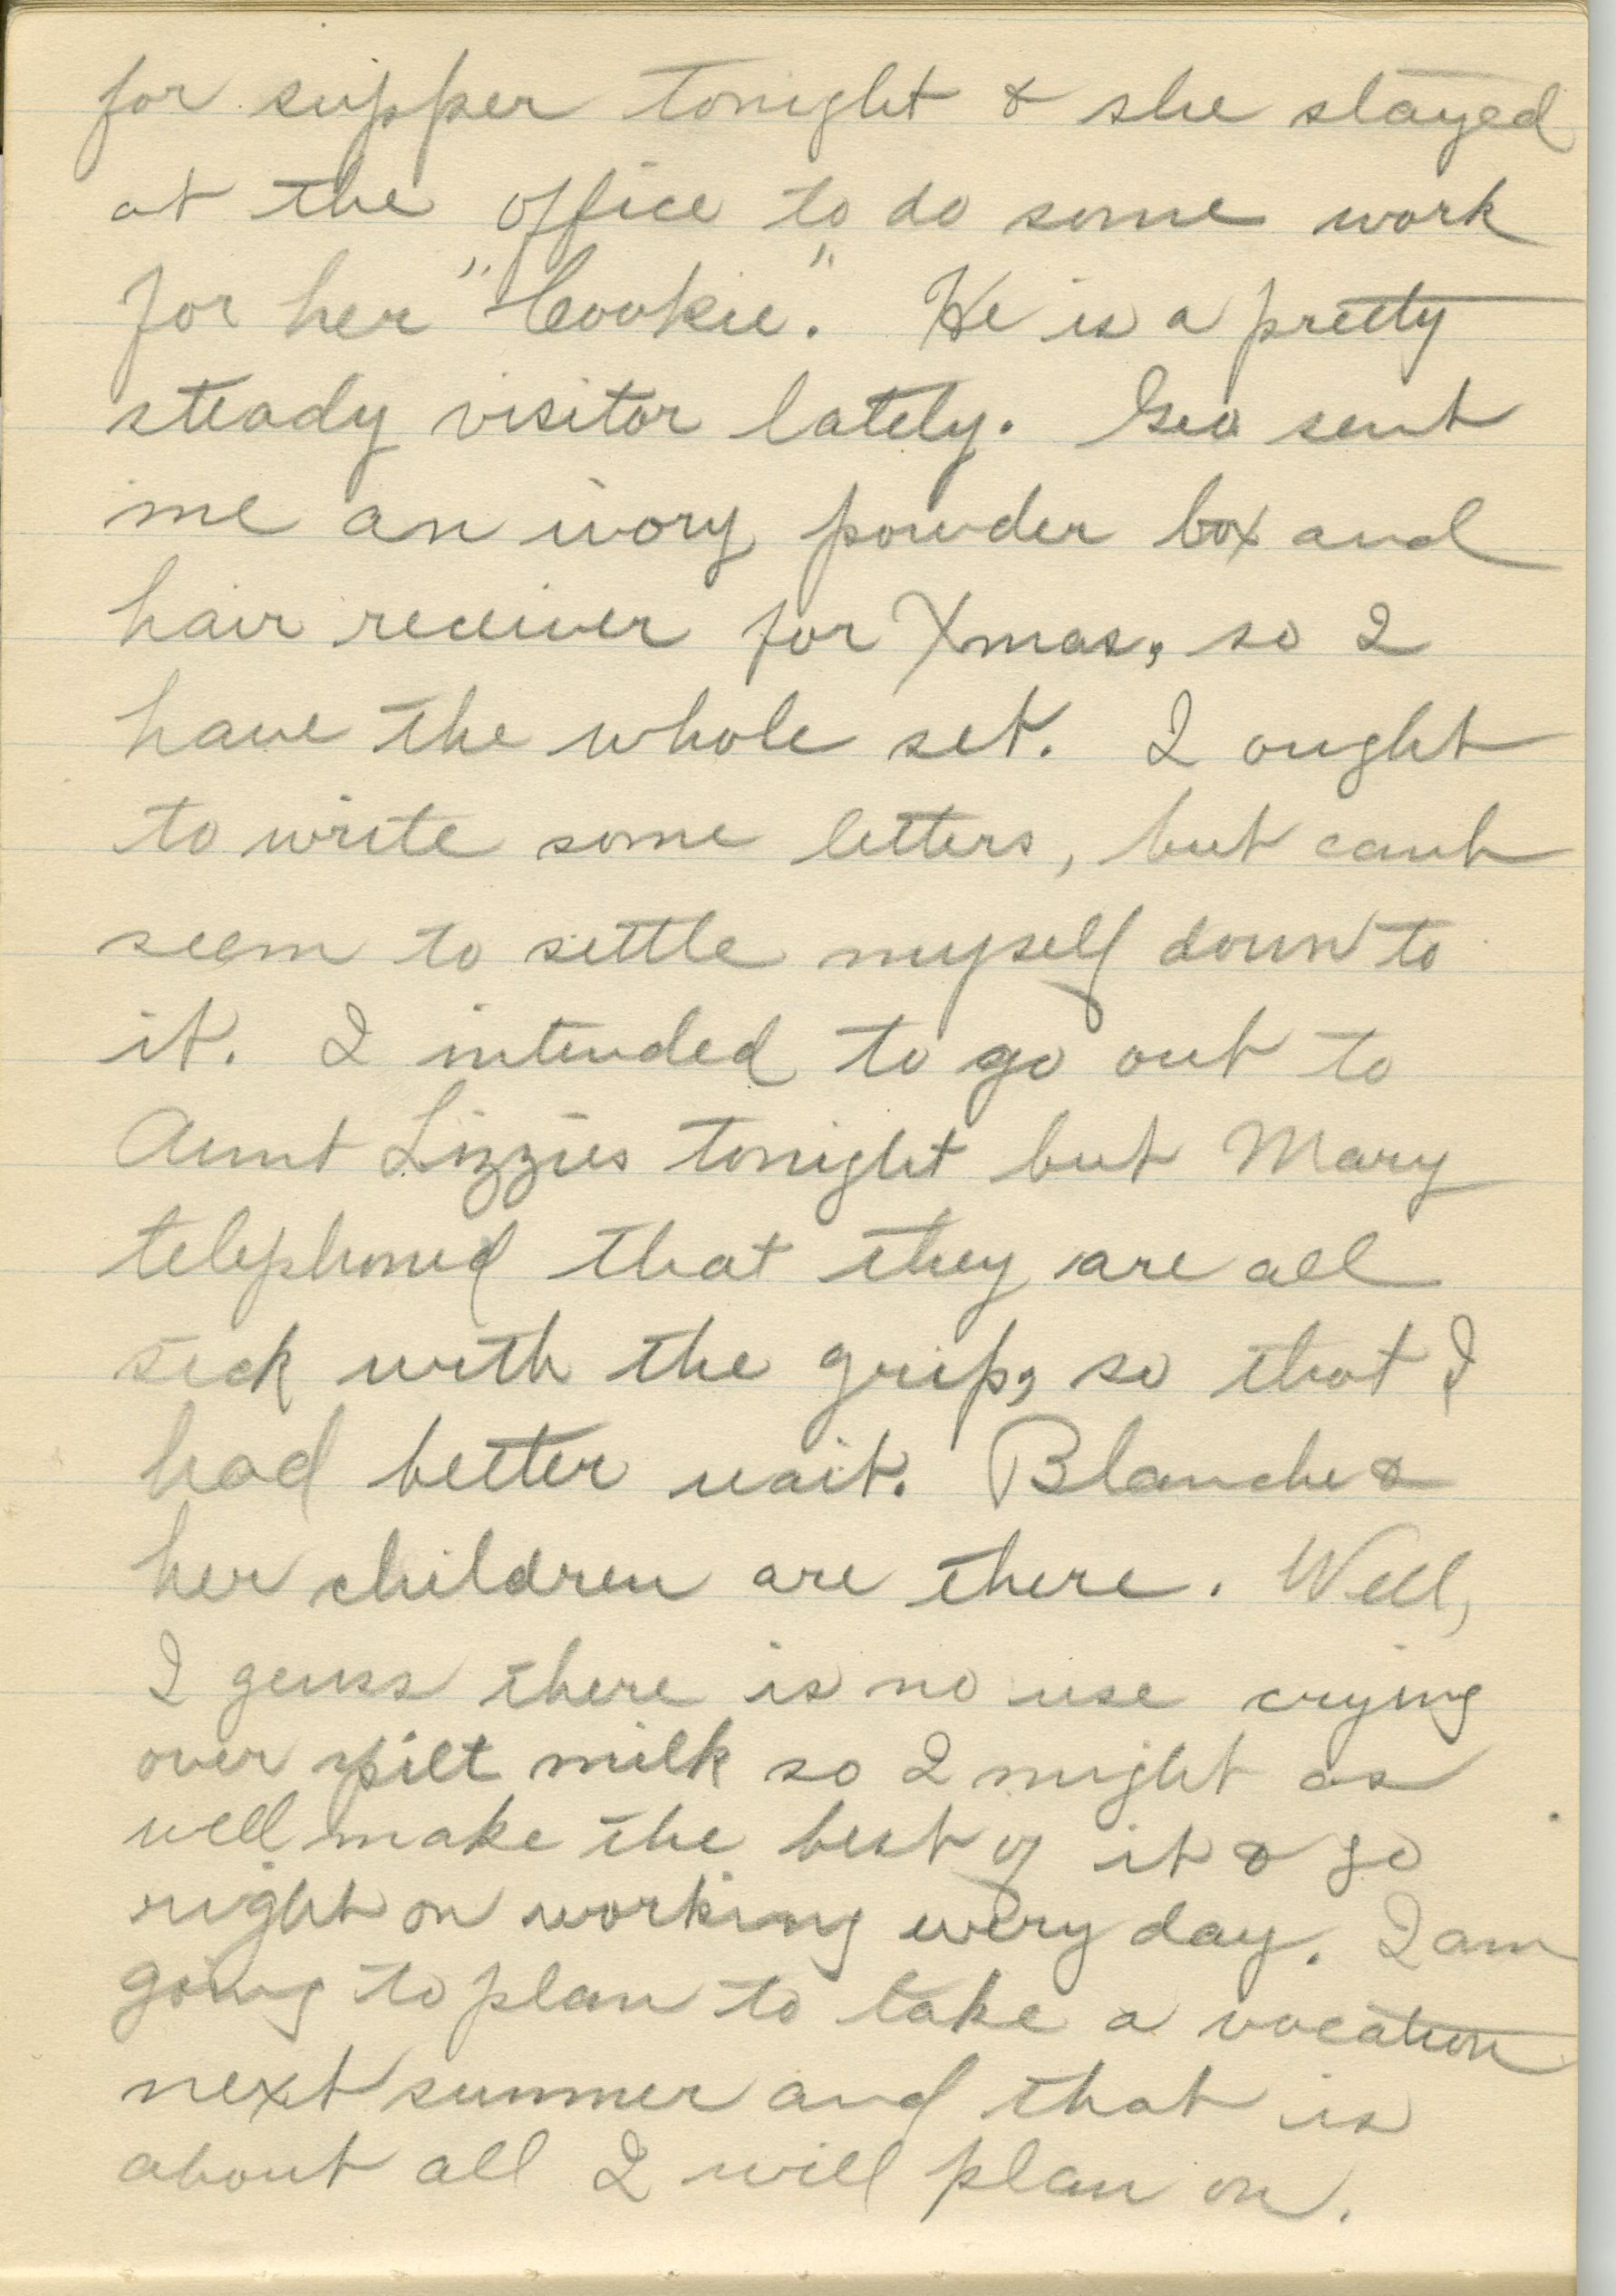 for supper tonight & she stayed
at the office to do some work
for her "Cookie". He is a pretty
steady visitor lately. Geo sent
me an ivory powder box and
hair receiver for Xmas, so I
have the whole set. I ought
to write some letters, but cant
seem to settle myself down to
it. I intended to go out to
Aunt Lizzies tonight but Mary
telephoned that they are all
sick with the grip, so that I
had better wait. Blanche &
her children are there. Well,
I guess there is no use crying
over spilt milk so I might as
well make the best of it & go
right on working every day. I am
going to plan to take a vacation
next summer and that is
about all I will plan on.